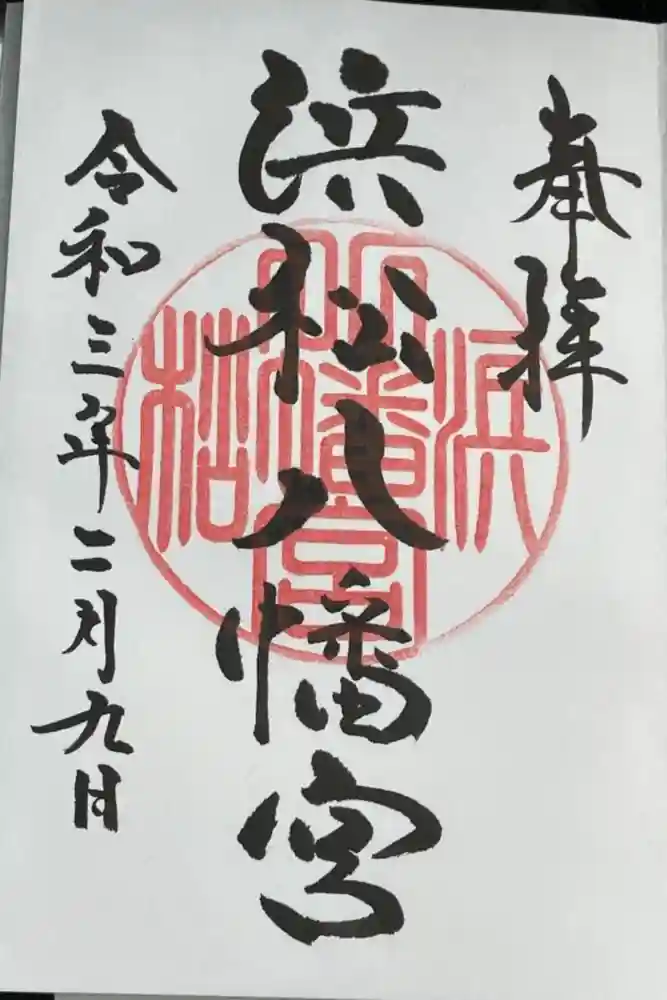 奉拝
浜松八幡宮
浜松八幡宮
令和三年二月九日